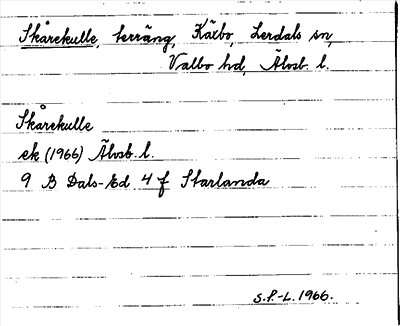 Skårekulle, terräng, Kärbo, Lerdals sn,
Valbo hd, Älvsb. l.
Skårekulle
ek (1966) Älvsb. l.
9 B Dals-Ed 4 f Starlanda
S.P.-L. 1966.